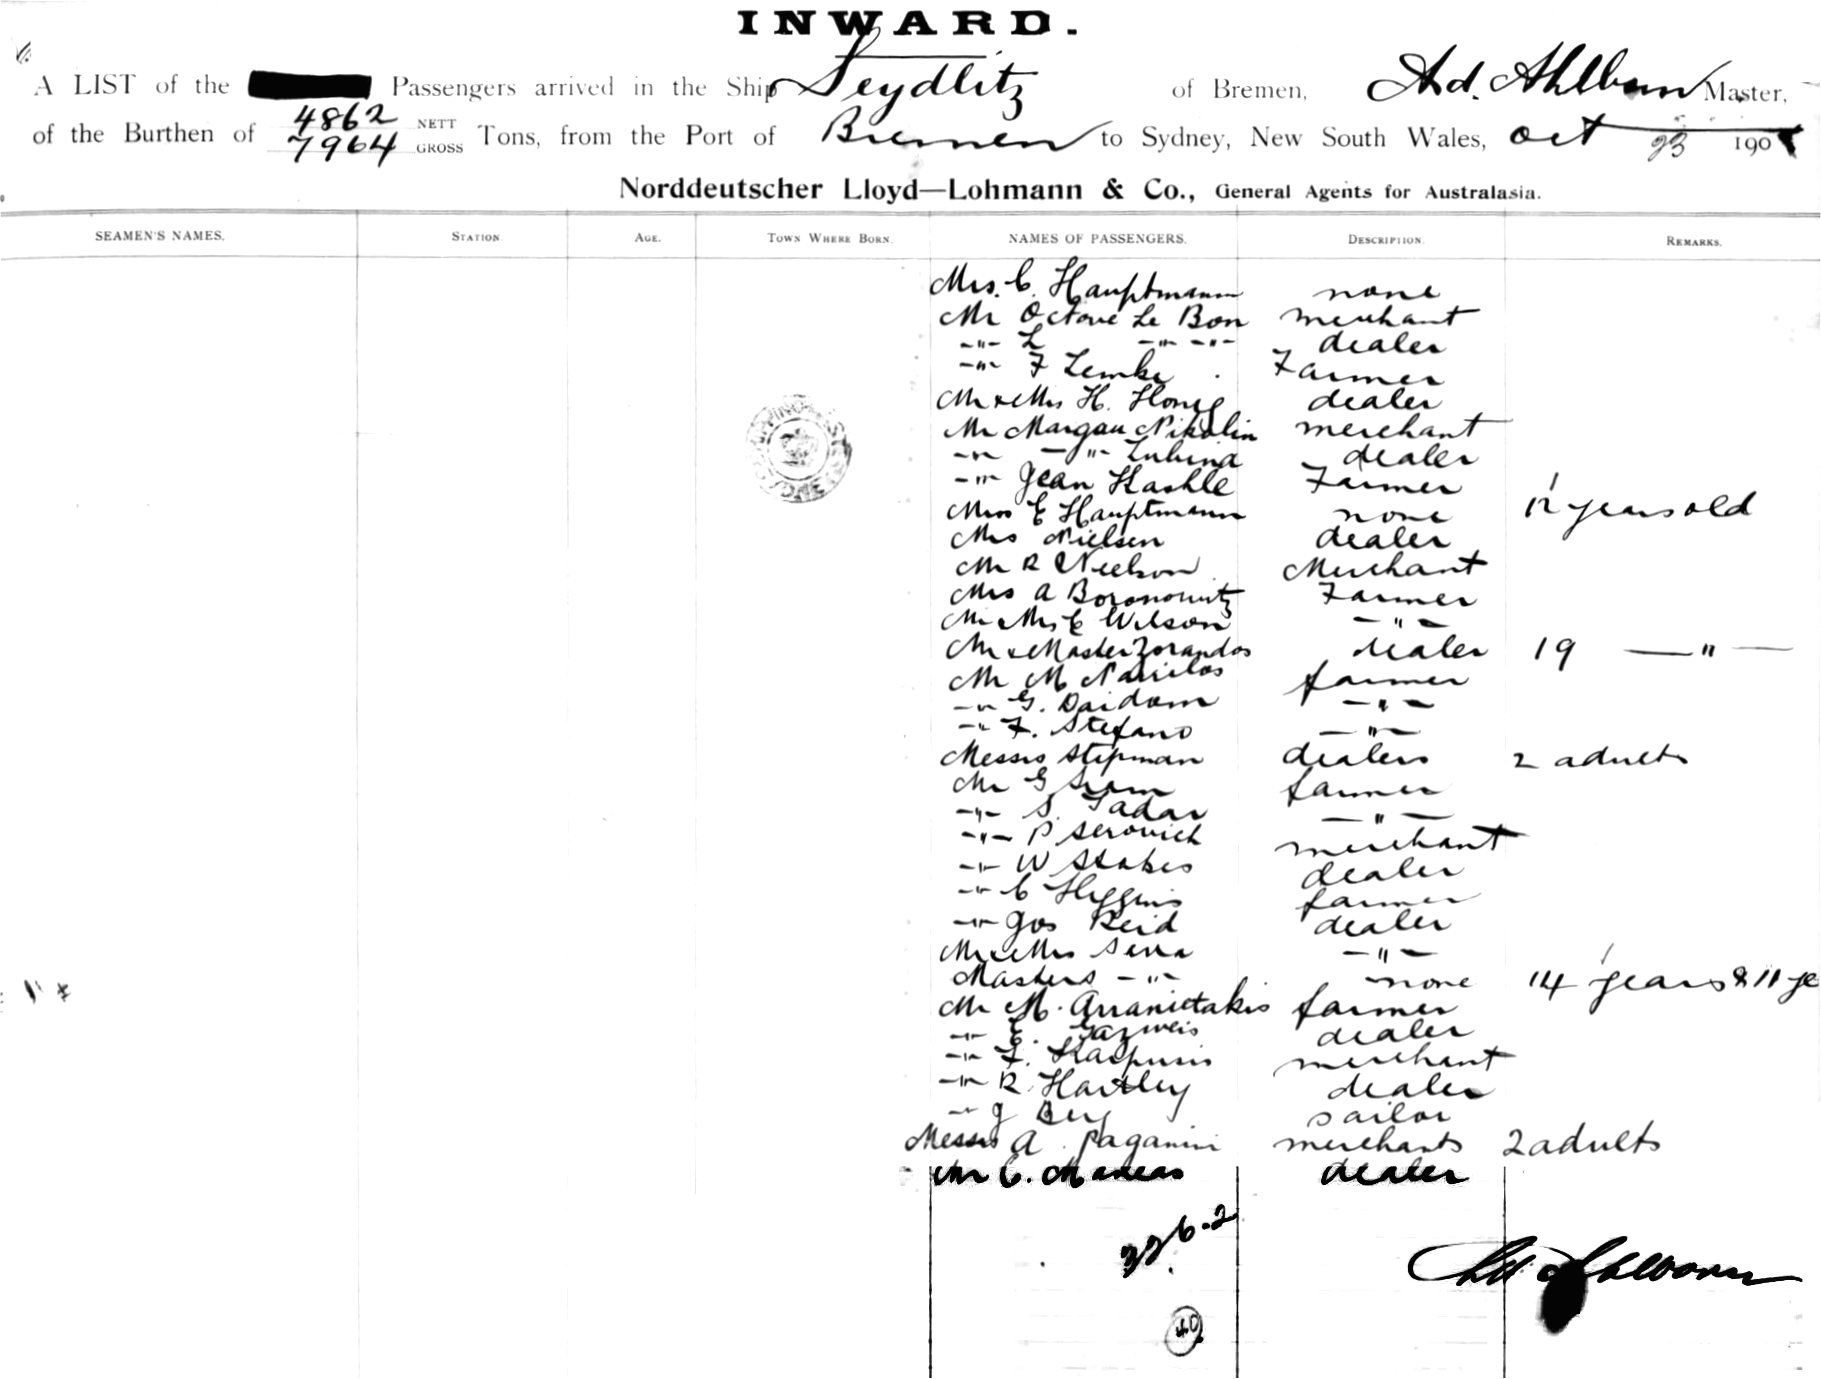 INWARD.
A LIST of the Passengers arrived in the Ship Seydlitz of Bremen, Ad. Ahlborn Master,
of the Burthen of 4862 NETT 7964 GROSS Tons, from the Port of Bremen to Sydney, New South Wales, Oct 23 190
Norddeutscher Lloyd—Lohmann & Co., General Agents for Australasia.
SEAMEN'S NAMES. STATION AGE. TOWN WHERE BORN. NAMES OF PASSENGERS. DESCRIPTION. REMARKS.
Mrs. C. Hauptmann none
Mr Octave Le Bon merchant
-"- L -"- -"- dealer
-"- F Lemke Farmer
Mr & Mrs H. Honig dealer
Mr Margau Nikolin merchant
-"- -"- Lubina dealer
-"- Jean Kashle Farmer
Miss E Hauptmann none 12 years old
Mrs Nielsen dealer
Mr R Neelson Merchant
Mrs A Boronowitz Farmer
Mr Mrs C Wilson -"-
Mr & Master Zorandos dealer 19 -"-
Mr M farmer
-"- G. Daidom -"-
-"- F. Stefano -"-
Messrs Stipman dealers 2 adults
Mr G farmer
-"- S. Tadar -"-
-"- P Serovich merchant
-"- W Stakes dealer
-"- C Higgins farmer
-"- Jos Reid dealer
Mr & Mrs Serra -"-
Masters -"- none 14 years & 11 ye
Mr M. Arranietakis farmer
-"- E. dealer
-"- F. Kaspuris merchant
-"- R. Hartley dealer
-"- J Berg sailor
Messrs A. Paganini merchants 2 adults
Mr C. Maneas dealer
226-2
Ad Ahlborn
40